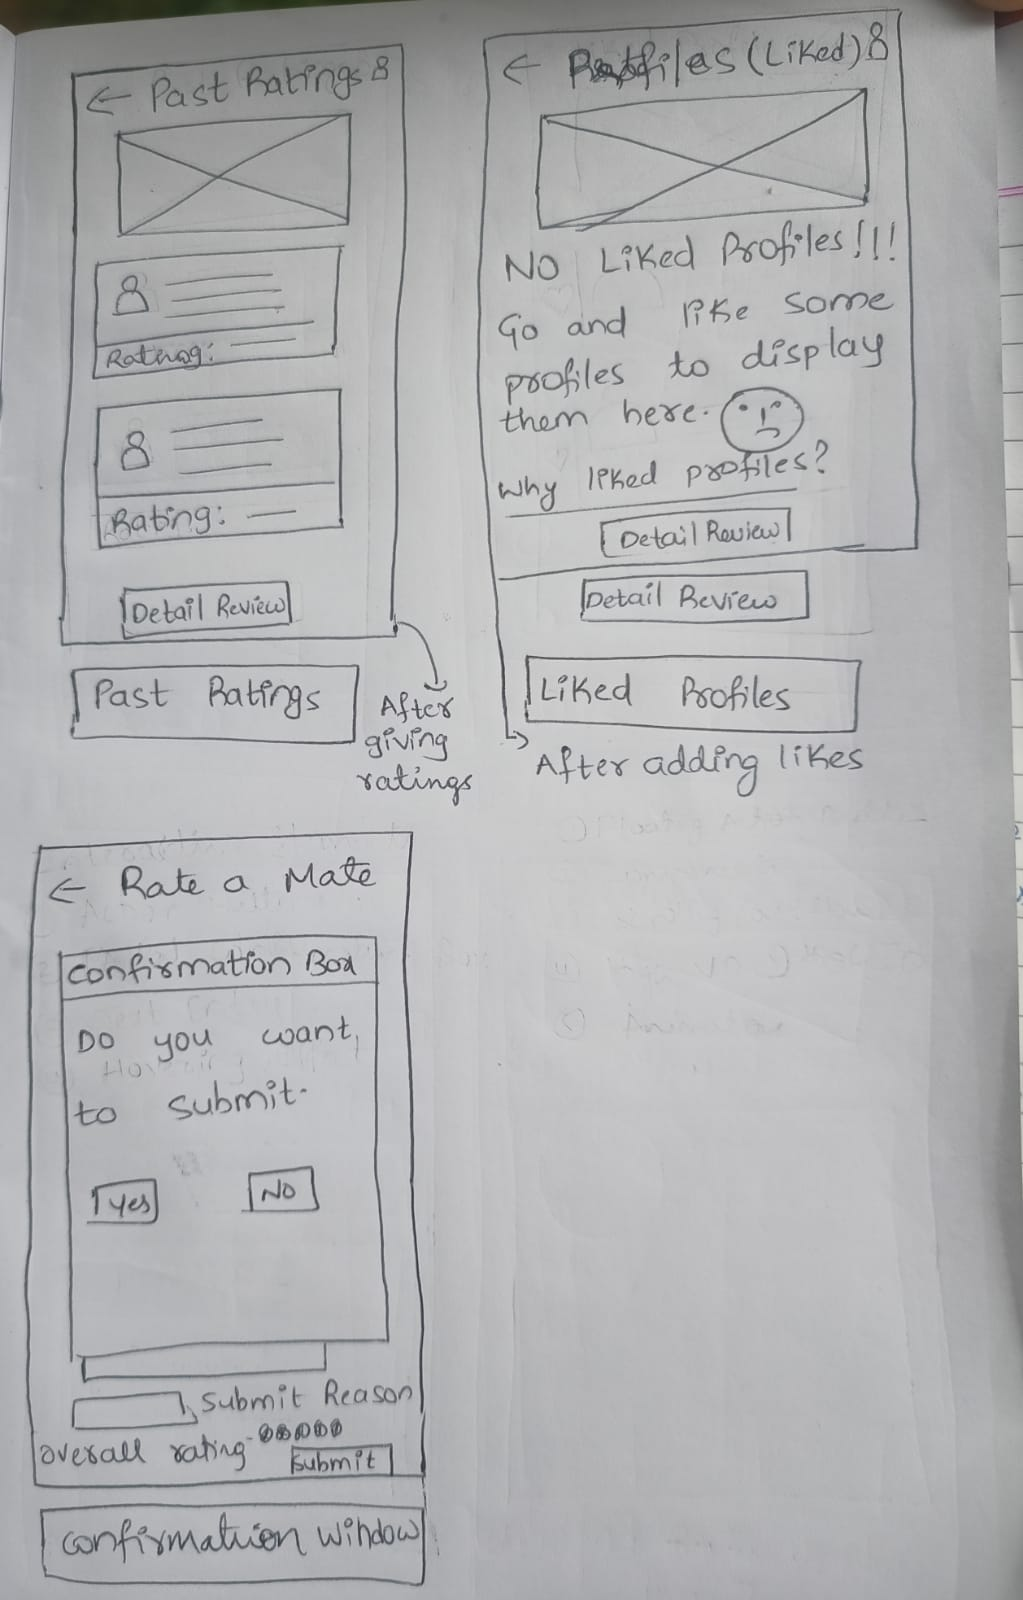 ← Past Ratings
Rating:
Rating:
Detail Review
Past Ratings
After
giving
ratings
← Profiles (Liked)
No Liked Profiles!!!
Go and like some
profiles to display
them here.
Why liked profiles?
Detail Review
Detail Review
Liked Profiles
After adding likes
← Rate a Mate
Confirmation Box
Do you want
to submit.
Yes
No
Submit Reason
overall rating
Submit
Confirmation Window